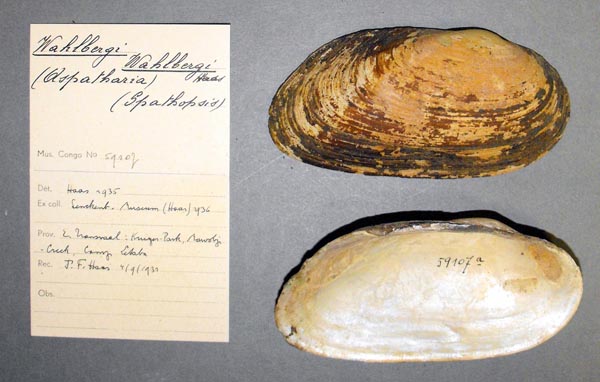 Wahlbergi
Wahlbergi
(Aspatharia) Haas
(Spathopsis)
Mus. Congo No 59107
Det. Haas 1935
Ex coll. Senckenb. Museum (Haas) 1936
Prov. E. Transvaal: Kruger Park,
Creek, Camp
Rec. F. Haas 4/9/1931
Obs.
59107a